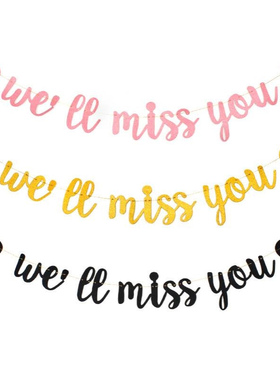 we'll miss you
we'll miss you
we'll miss you